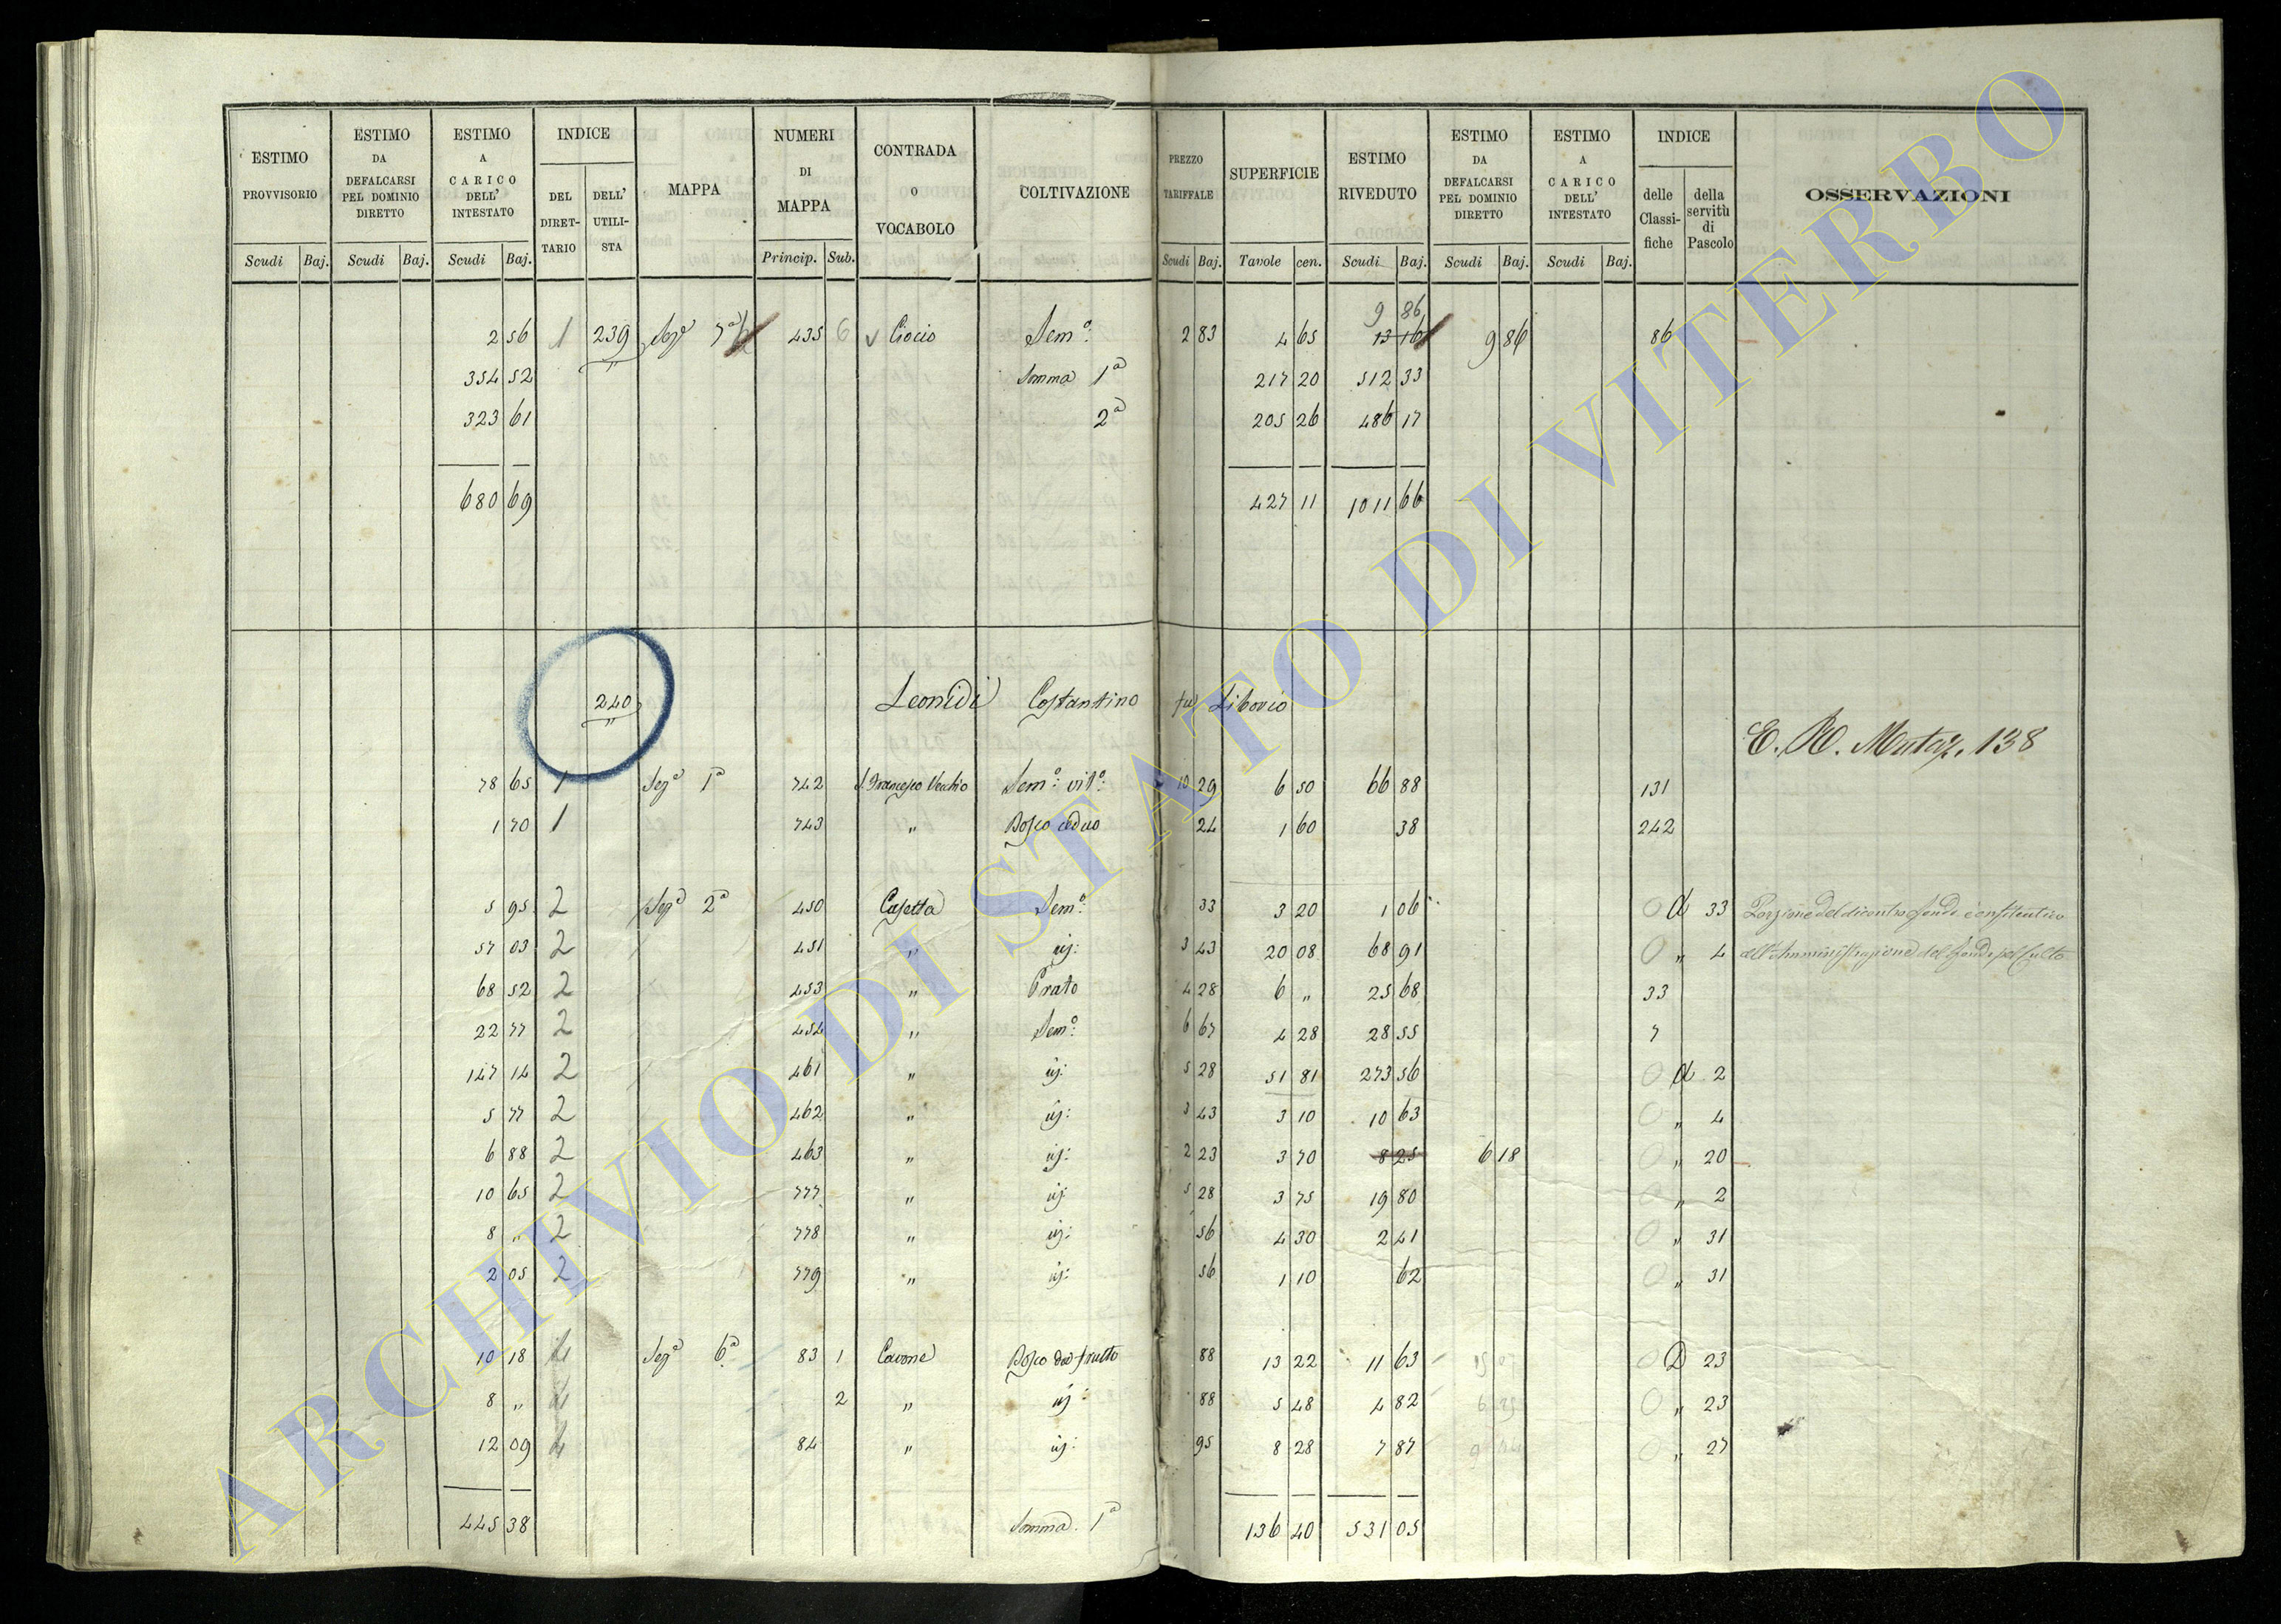 ESTIMO PROVVISORIO | ESTIMO DA DEFALCARSI PEL DOMINIO DIRETTO | ESTIMO A CARICO DELL' INTESTATO | INDICE | MAPPA | NUMERI DI MAPPA | CONTRADA O VOCABOLO | COLTIVAZIONE | PREZZO TARIFFALE | SUPERFICIE | ESTIMO RIVEDUTO | ESTIMO DA DEFALCARSI PEL DOMINIO DIRETTO | ESTIMO A CARICO DELL' INTESTATO | INDICE | OSSERVAZIONI
DEL DIRETTARIO | DELL' UTILISTA | delle Classifiche | della servitù di Pascolo
Scudi | Baj. | Scudi | Baj. | Scudi | Baj. | Princip. | Sub. | Scudi | Baj. | Tavole | cen. | Scudi | Baj. | Scudi | Baj. | Scudi | Baj.
9 86
2 56 1 239 Sezª 7ª 435 6 Ciocio Semº: 2 83 4 65 13 16 9 86 86
354 52 Somma 1ª 217 20 512 33
323 61 2ª 205 26 486 17
680 69 427 11 1011 66
240 Leonidi Costantino fu Liborio
E. R. Mutaz. 138
78 65 1 Sezª 1ª 742 S. Francesco Vecchio Semº: vitº: 10 29 6 50 66 88 131
1 70 1 743 " Bosco ceduo 24 1 60 38 242
5 95 2 Sezª 2ª 450 Casetta Semº: 33 3 20 1 06 O d 33 Porzione del dicontro fondo è enfiteutico
57 03 2 451 " iɉ: 3 43 20 08 68 91 O " 4 all'Amministrazione del Fondo pel Culto
68 52 2 453 " Prato 4 28 6 " 25 68 33
22 77 2 454 " Semº: 6 67 4 28 28 55 7
147 14 2 461 " iɉ: 5 28 51 81 273 56 O d 2
5 77 2 462 " iɉ: 3 43 3 10 10 63 O " 4
6 88 2 463 " iɉ: 2 23 3 70 8 25 6 18 O " 20
10 65 2 777 " iɉ: 5 28 3 75 19 80 O " 2
8 " 2 778 " iɉ: 56 4 30 2 41 O " 31
2 05 2 779 " iɉ: 56 1 10 62 O " 31
10 18 Sezª 6ª 83 1 Cavone Bosco da frutto 88 13 22 11 63 O D 23
8 " 2 " iɉ: 88 5 48 4 82 O " 23
12 09 84 " iɉ: 95 8 28 7 87 O " 27
445 38 Somma 1ª 136 40 531 05
ARCHIVIO DI STATO DI VITERBO